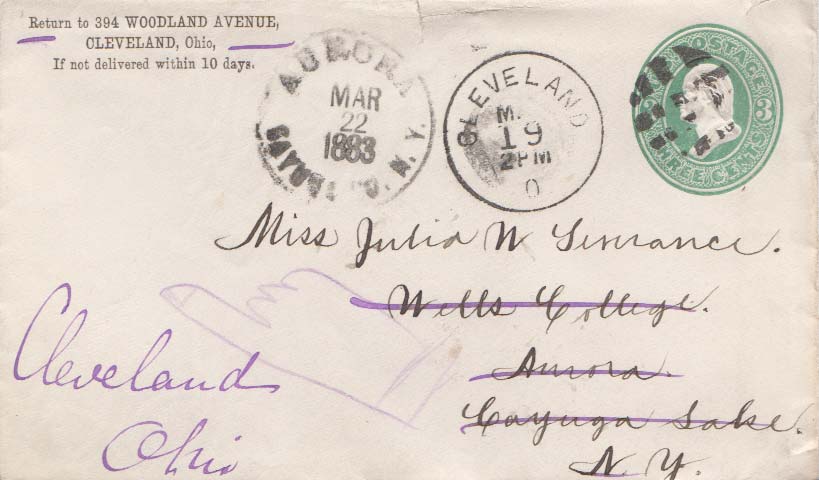 Return to 394 WOODLAND AVENUE,
CLEVELAND, Ohio,
If not delivered within 10 days.
AURORA
MAR
22
1883
N. Y.
CLEVELAND
M
19
2PM
O
POSTAGE
3
THREE CENTS
Miss Julia N
Wells College.
Aurora.
Cayuga Lake.
N. Y.
Cleveland
Ohio